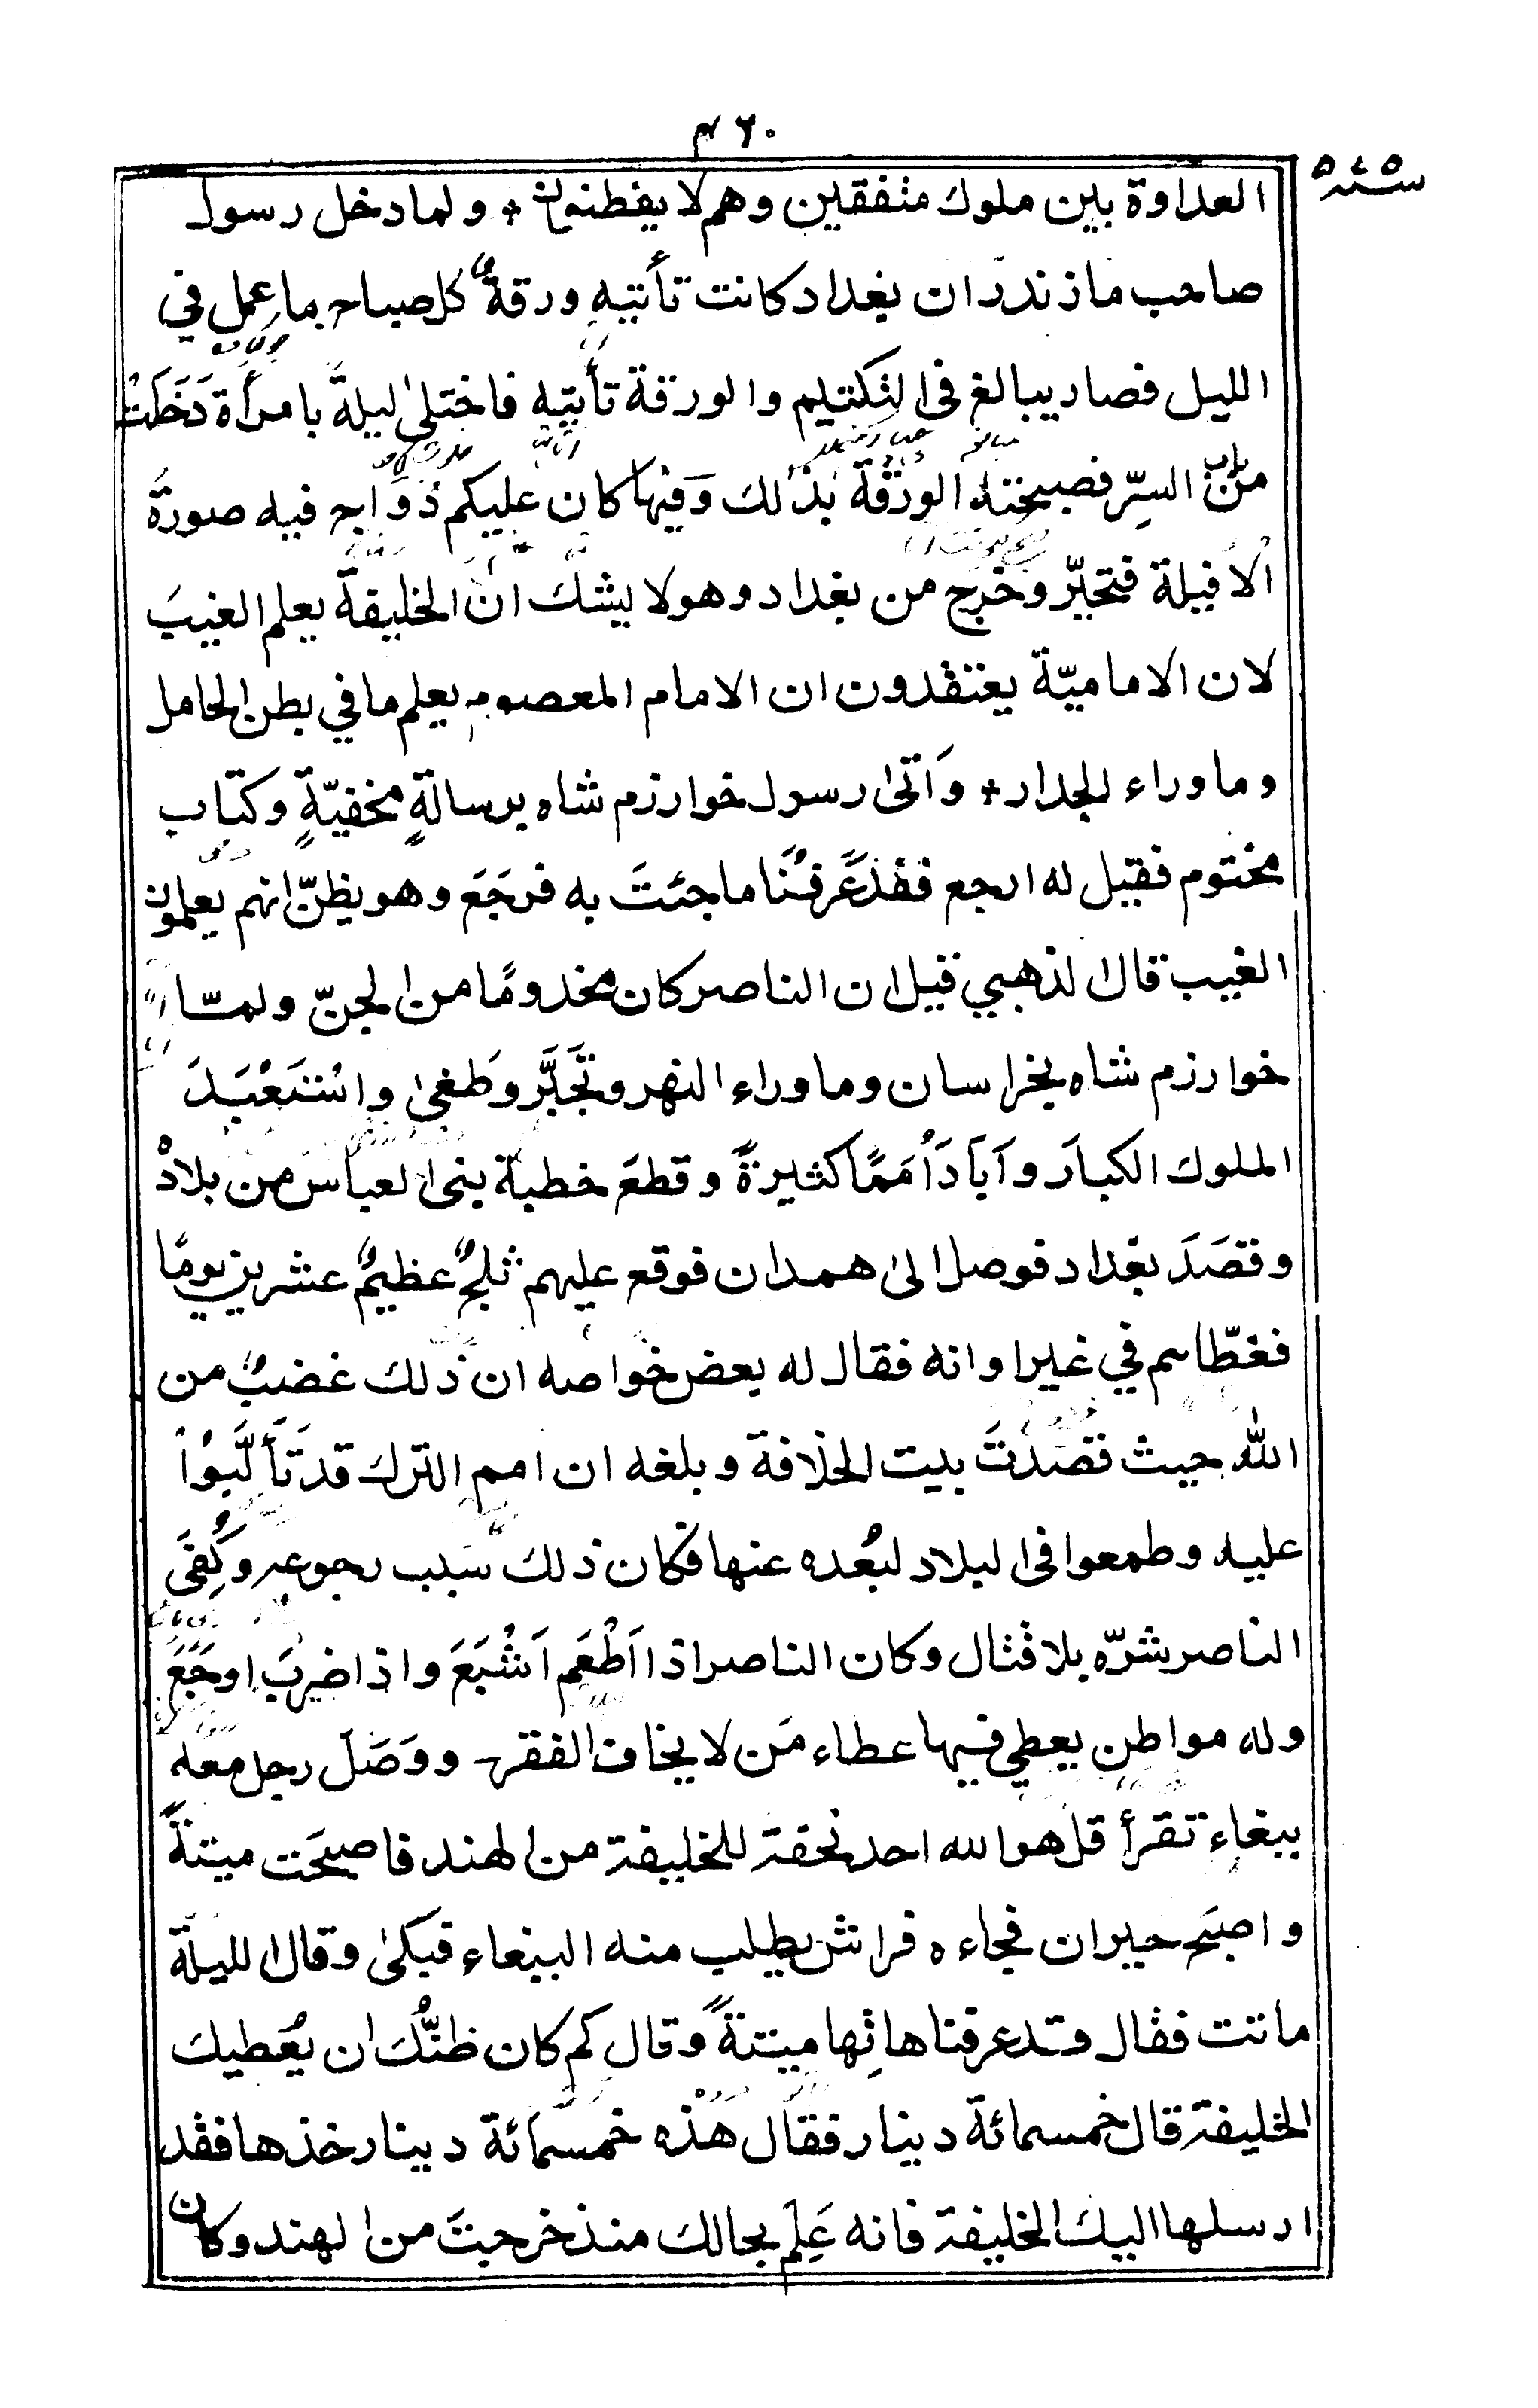 ۴۶۰
سنة ۵۷۵
العداوة بين ملوك متفقين وهم لا يفطنون * ولما دخل رسول
صاحب مازندران بغداد كانت تأتيه ورقةٌ كل صباح بما عمل في
الليل فصار يبالغ في التكتيم والورقة تأتيه فاختلىٰ ليلة بامرأة دَخَلَتْ
من باب السِّر فصبحته الورقة بذلك وَفيها كان عليكم دُوَاج فيه صورة
الافيلة فتحيّر وخرج من بغداد وهو لا يشك ان الخليفة يعلم الغيبَ
لان الاماميّة يعتقدون ان الامام المعصوم يعلم ما في بطن الحامل
وما وراء الجدار * وَاَتىٰ رسول خوارزم شاه برسالةٍ مخفيّةٍ وكتاب
مختوم فقيل له ارجع فقد عَرفْنَا ما جئتَ به فرجَعَ وهو يظنّ انهم يعلمون
الغيب قال الذهبي قيل ان الناصر كان مخدومًا من الجنّ ولمّا
خوارزم شاه بخراسان وما وراء النهر وتَجَبَّر وطَغىٰ واسْتَعْبَدَ
الملوك الكبارَ واَبَادَ اُمَمًا كثيرةً وقطعَ خطبة بنى العباس من بلادهٖ
وقصَدَ بغداد فوصل الىٰ همدان فوقع عليهم ثلجٌ عظيمٌ عشرين يومًا
فغطّاهم في غير اوانه فقال له بعض خواصه ان ذلك غضبٌ من
الله حيث قصدتَ بيت الخلافة وبلغه ان امم الترك قد تَأَلَّبُوْا
عليه وطمعوا فى البلاد لبُعْده عنها فكان ذلك سَبب رجوعه وكُفِىَ
الناصر شرّه بلا قتال وكان الناصر اذا اَطْعَم اَشْبَعَ واذا ضربَ اوجَعَ
وله مواطن يعطي فيها عطاء مَن لا يخاف الفقر ووَصَلَ رجل معه
ببغاء تقرأ قل هو الله احد تحفة للخليفة من الهند فاصبحَت ميتةً
واصبَح حيران فجاءه فراش يطلب منه الببغاء فبكىٰ وقال الليلة
ماتت فقال قد عرفناها انها ميتةً وقال كم كان ظنُّك ان يُعطيك
الخليفة قال خمسمائة دينار فقال هٰذه خمسمائة دينار خذها فقد
ارسلها اليك الخليفة فانه عَلِم بحالك منذ خرجتَ من الهند وكان